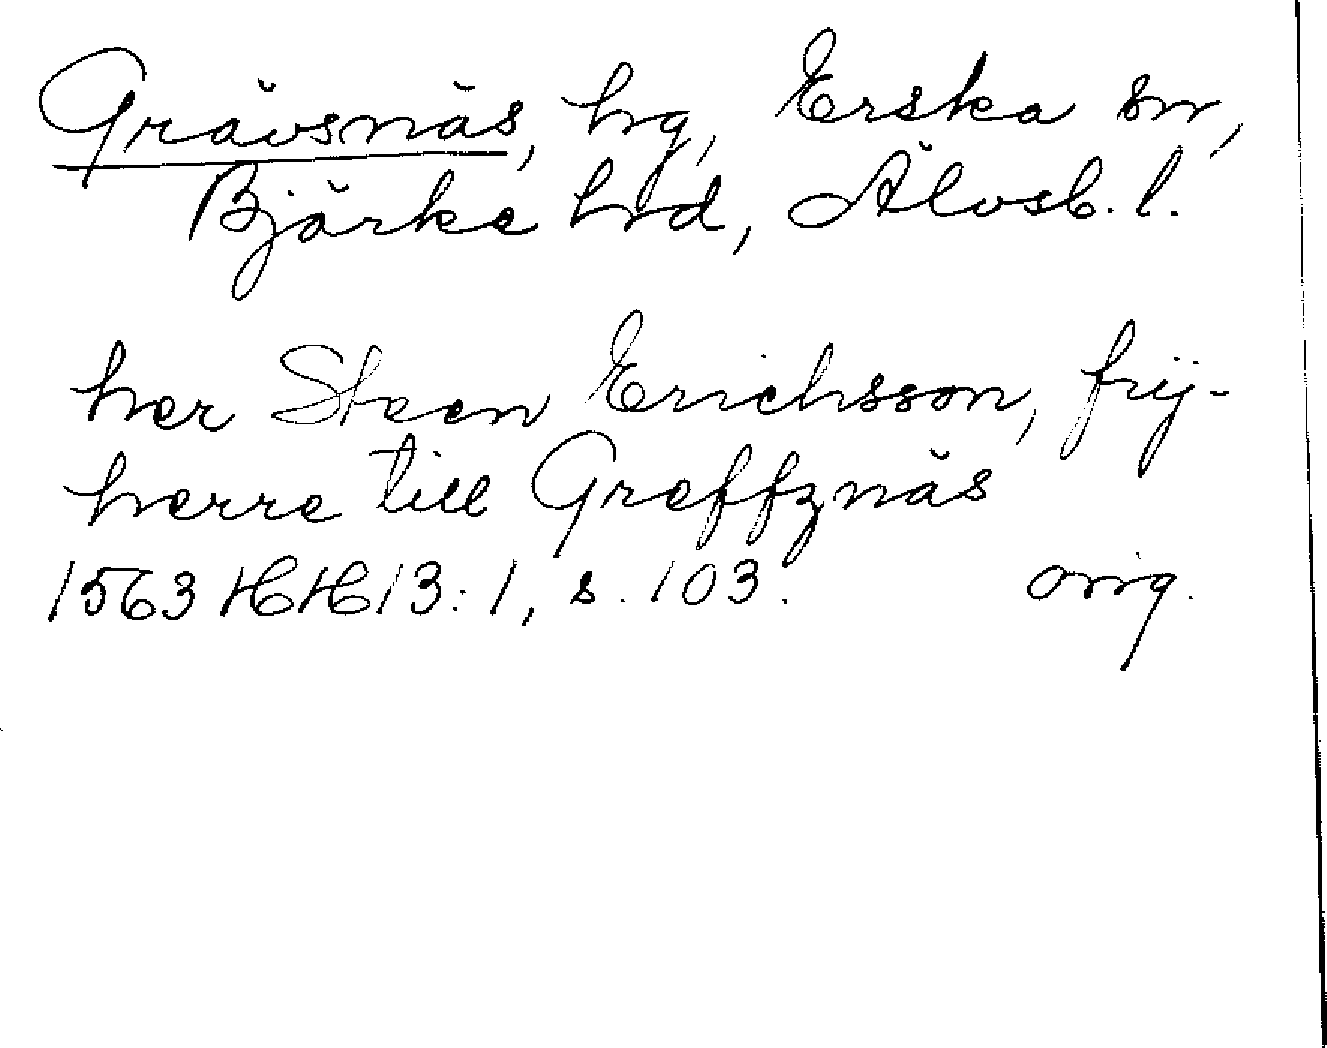 Grävsnäs, hg, Erska sn,
Bjärke hrd, Älvsb. l.
her Steen Erichsson, frij-
herre till Greffznäs
1563 HH 13:1, s. 103. orig.